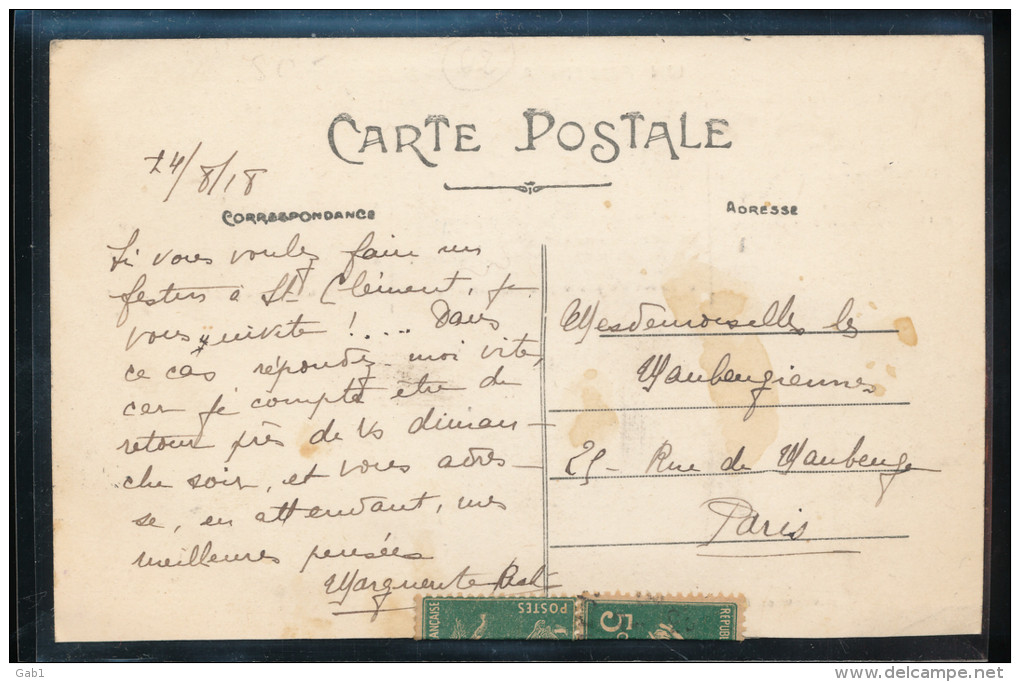 CARTE POSTALE
24/8/18
CORRESPONDANCE
Si vous voulez faire un
festin à St Clément, je
vous invite ! .... Dans
ce cas répondez-moi vite,
car je compte être de
retour près de vs diman-
che soir, et vous adres-
se, en attendant, mes
meilleures pensées
Marguerite
ADRESSE
Mesdemoiselles les
Maubeugiennes
25- Rue de Maubeuge
Paris
POSTES
5
Gab1
www.delcampe.net